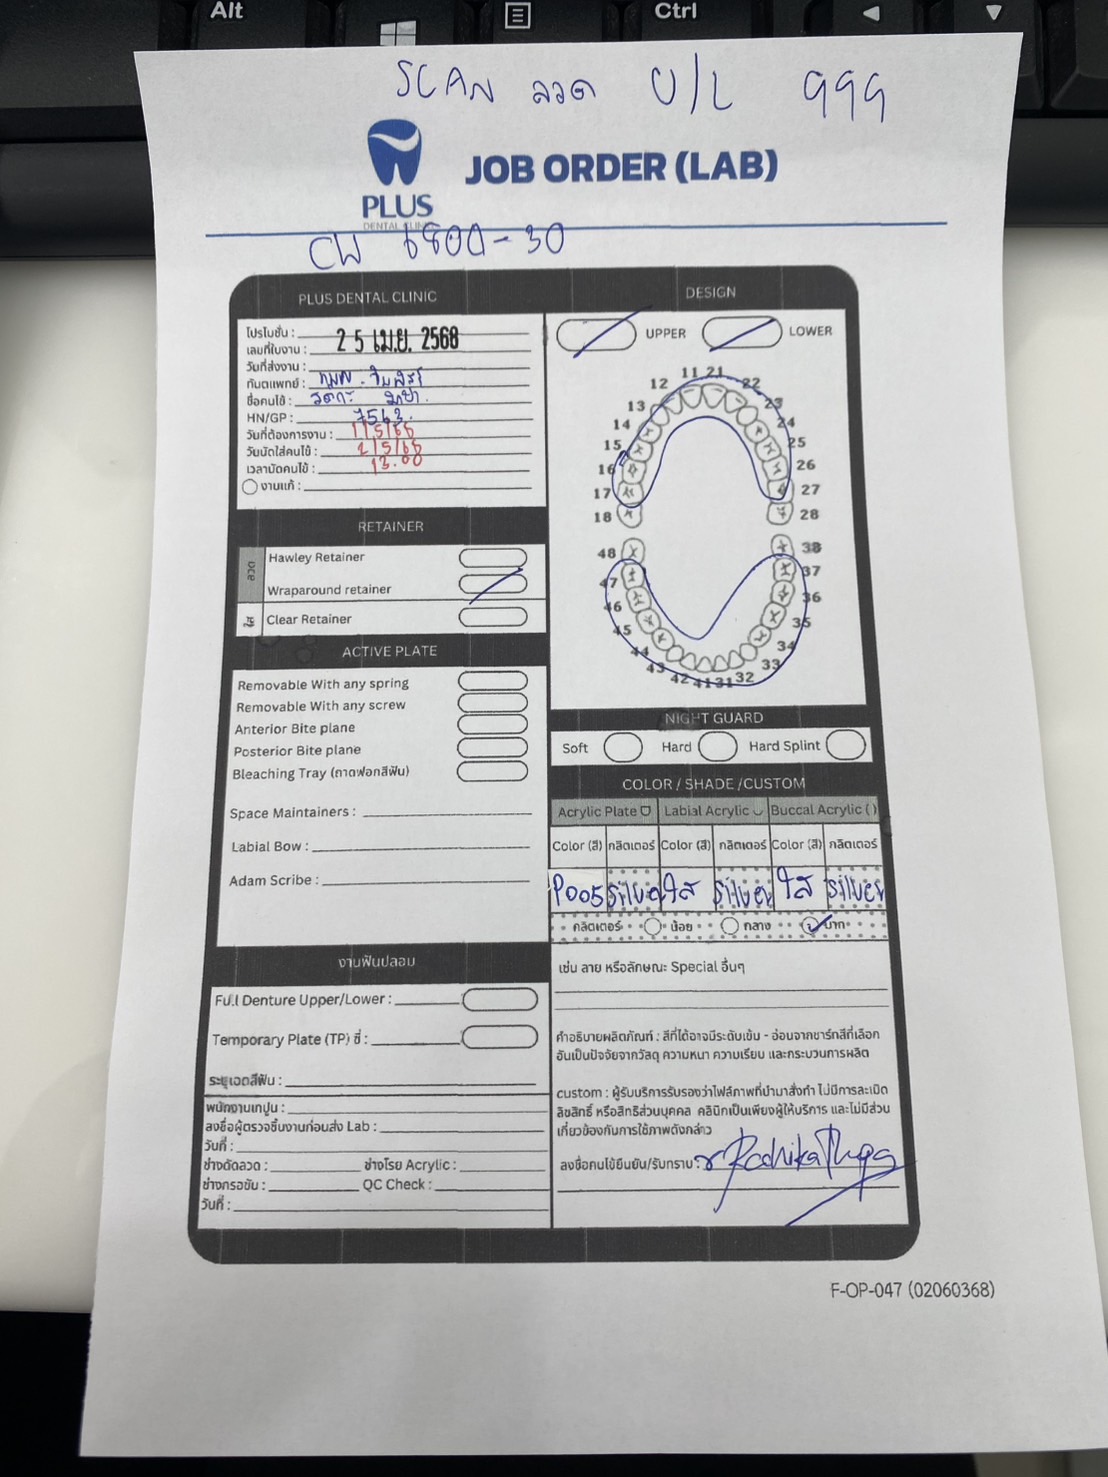 Alt
Ctrl
SCAN ลวด U/L ๑๑๑
PLUS
DENTAL CLINIC
JOB ORDER (LAB)
CW 6800-30
PLUS DENTAL CLINIC
โปรโมชั่น :
เลขที่ใบงาน :
25 เม.ย. 2568
วันที่ส่งงาน :
ทันตแพทย์ :
ชื่อคนไข้ :
HN/GP : 7563
วันที่ต้องการงาน : 1/5/68
วันนัดใส่คนไข้ : 2/5/68
เวลานัดคนไข้ : 13.00
งานแก้ :
RETAINER
ลวด
Hawley Retainer
Wraparound retainer
ใส
Clear Retainer
ACTIVE PLATE
Removable With any spring
Removable With any screw
Anterior Bite plane
Posterior Bite plane
Bleaching Tray (ถาดฟอกสีฟัน)
Space Maintainers :
Labial Bow :
Adam Scribe :
งานฟันปลอม
Full Denture Upper/Lower :
Temporary Plate (TP) ซี่ :
ระบุเฉดสีฟัน :
พนักงานเทปูน :
ลงชื่อผู้ตรวจชิ้นงานก่อนส่ง Lab :
วันที่ :
ช่างดัดลวด : ช่างโรย Acrylic :
ช่างกรอขัด : QC Check :
วันที่ :
DESIGN
UPPER LOWER
11 21
12 22
13 23
14 24
15 25
16 26
17 27
18 28
48 38
47 37
46 36
45 35
44 34
43 33
42 41 31 32
NIGHT GUARD
Soft Hard Hard Splint
COLOR / SHADE /CUSTOM
Acrylic Plate Labial Acrylic Buccal Acrylic ( )
Color (สี) กลิตเตอร์ Color (สี) กลิตเตอร์ Color (สี) กลิตเตอร์
P005 Silver ใส Silver ใส Silver
กลิตเตอร์ น้อย กลาง มาก
เช่น ลาย หรือลักษณะ Special อื่นๆ
คำอธิบายผลิตภัณฑ์ : สีที่ได้อาจมีระดับเข้ม - อ่อนจากชาร์ทสีที่เลือก
อันเป็นปัจจัยจากวัสดุ ความหนา ความเรียบ และกระบวนการผลิต
custom : ผู้รับบริการรับรองว่าไฟล์ภาพที่นำมาสั่งทำ ไม่มีการละเมิด
ลิขสิทธิ์ หรือสิทธิส่วนบุคคล คลินิกเป็นเพียงผู้ให้บริการ และไม่มีส่วน
เกี่ยวข้องกับการใช้ภาพดังกล่าว
ลงชื่อคนไข้ยืนยัน/รับทราบ :
F-OP-047 (02060368)